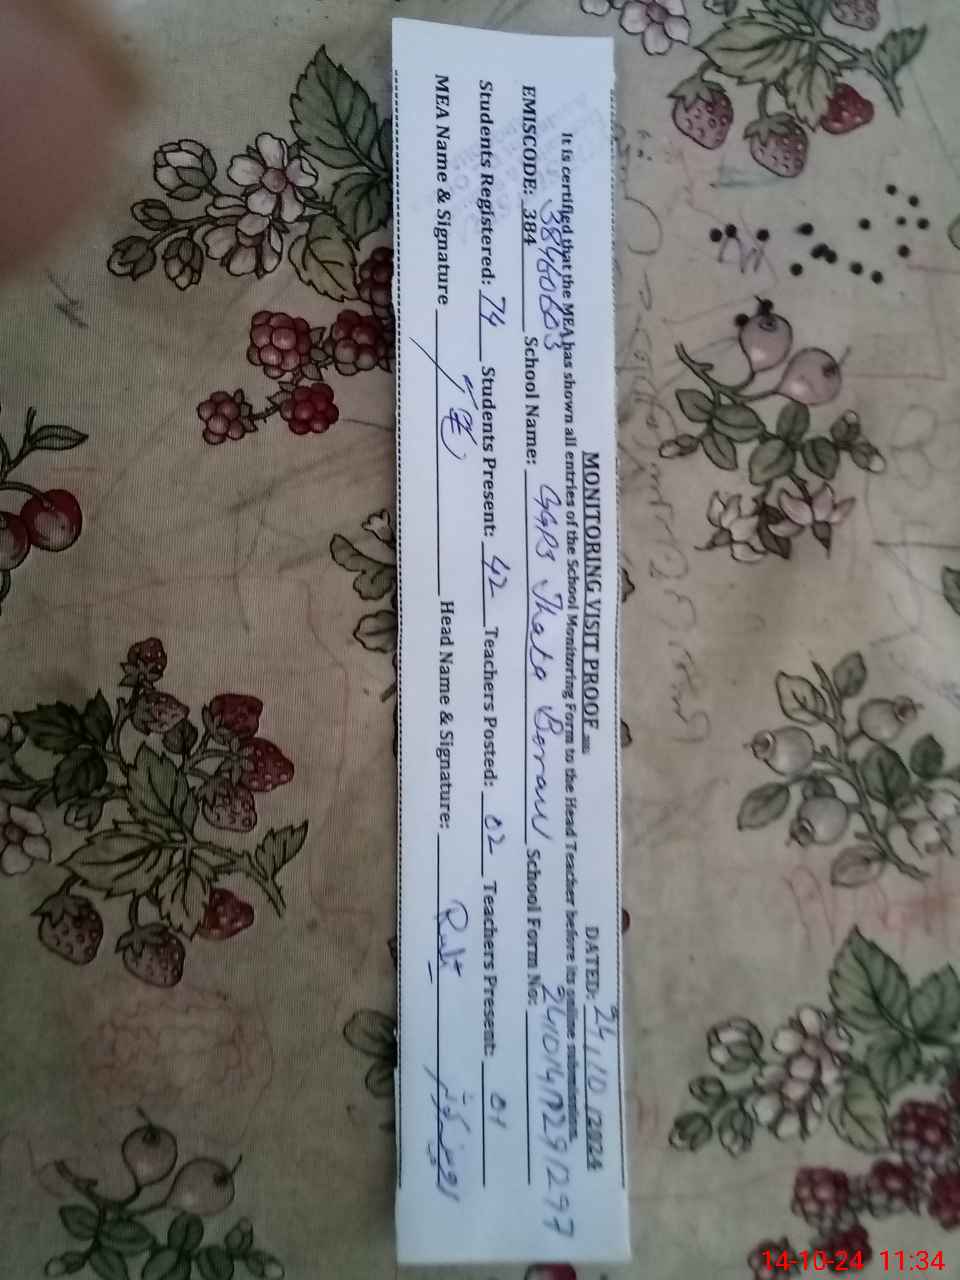 MONITORING VISIT PROOF DATED: 24/10/2024
It is certified that the MEA has shown all entries of the School Monitoring Form to the Head Teacher before its online submission.
EMISCODE: 384 38460603 School Name: GGPS Thata Boraw School Form No: 2410141729 1297
Students Registered: 74 Students Present: 42 Teachers Posted: 02 Teachers Present: 01
MEA Name & Signature Head Name & Signature:
14-10-24 11:34